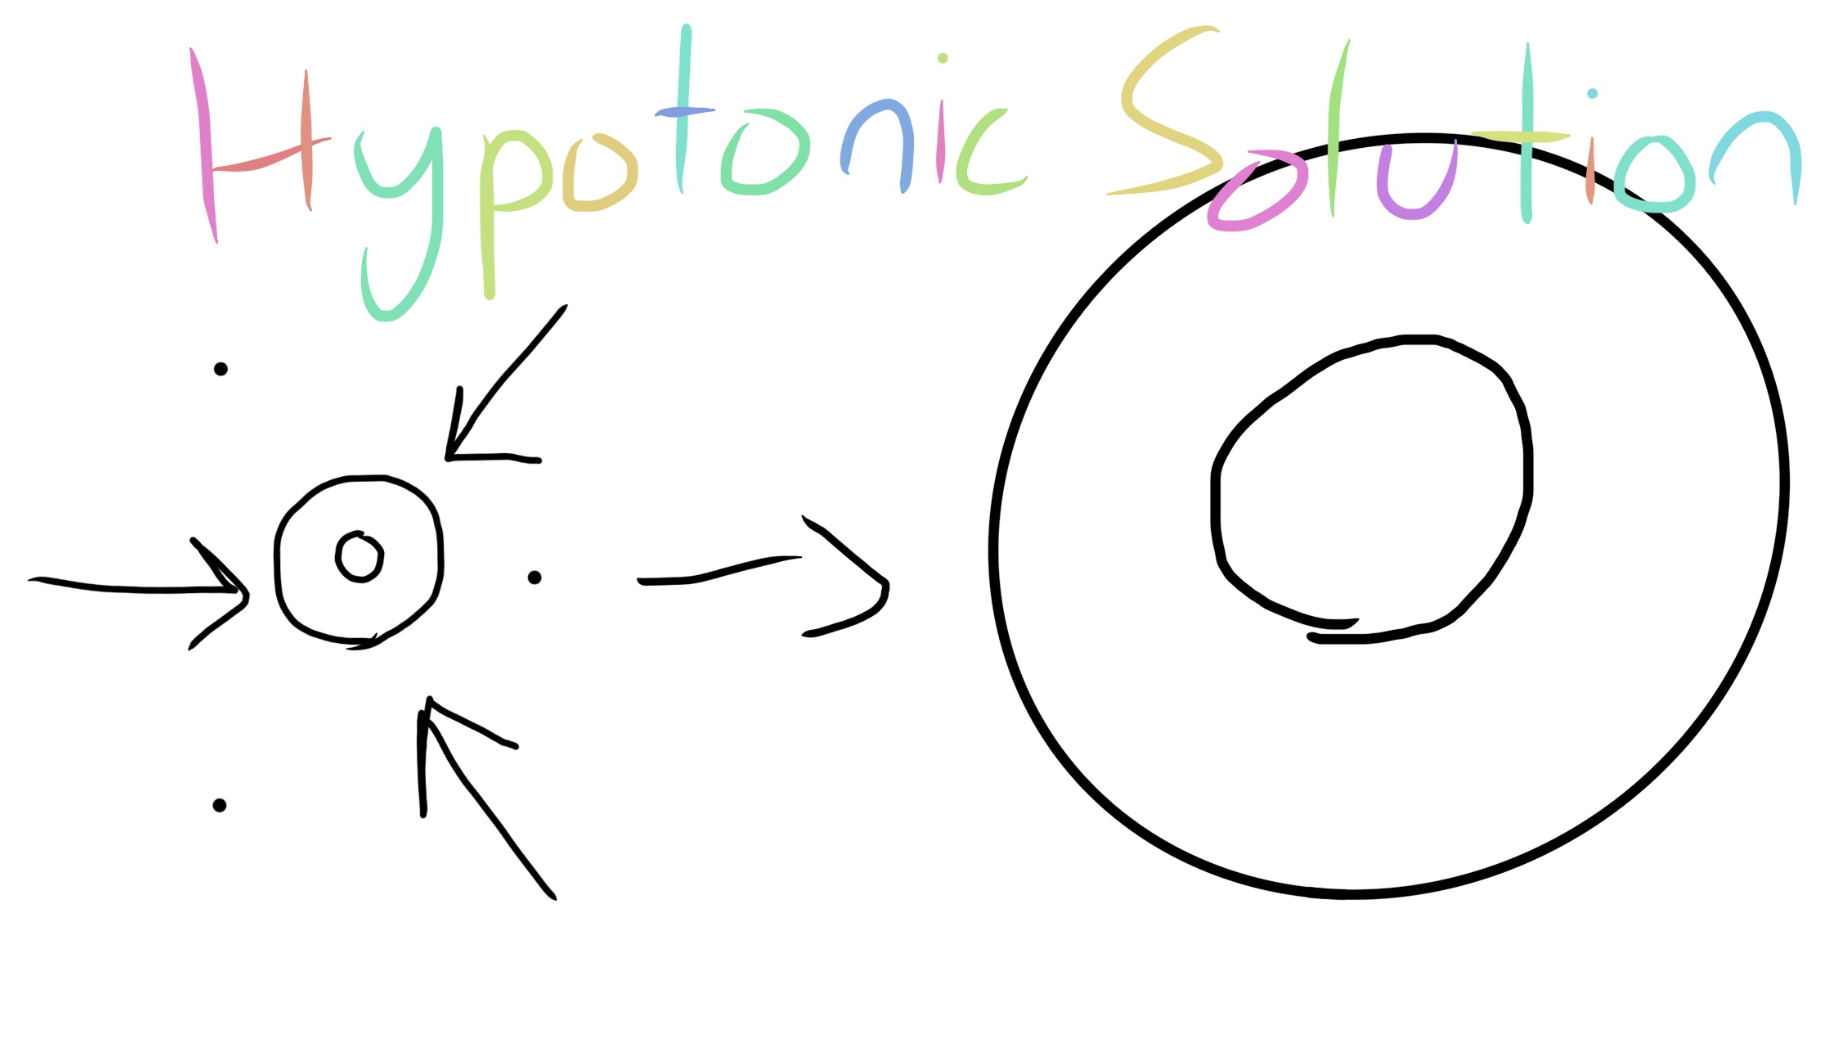 Hypotonic Solution